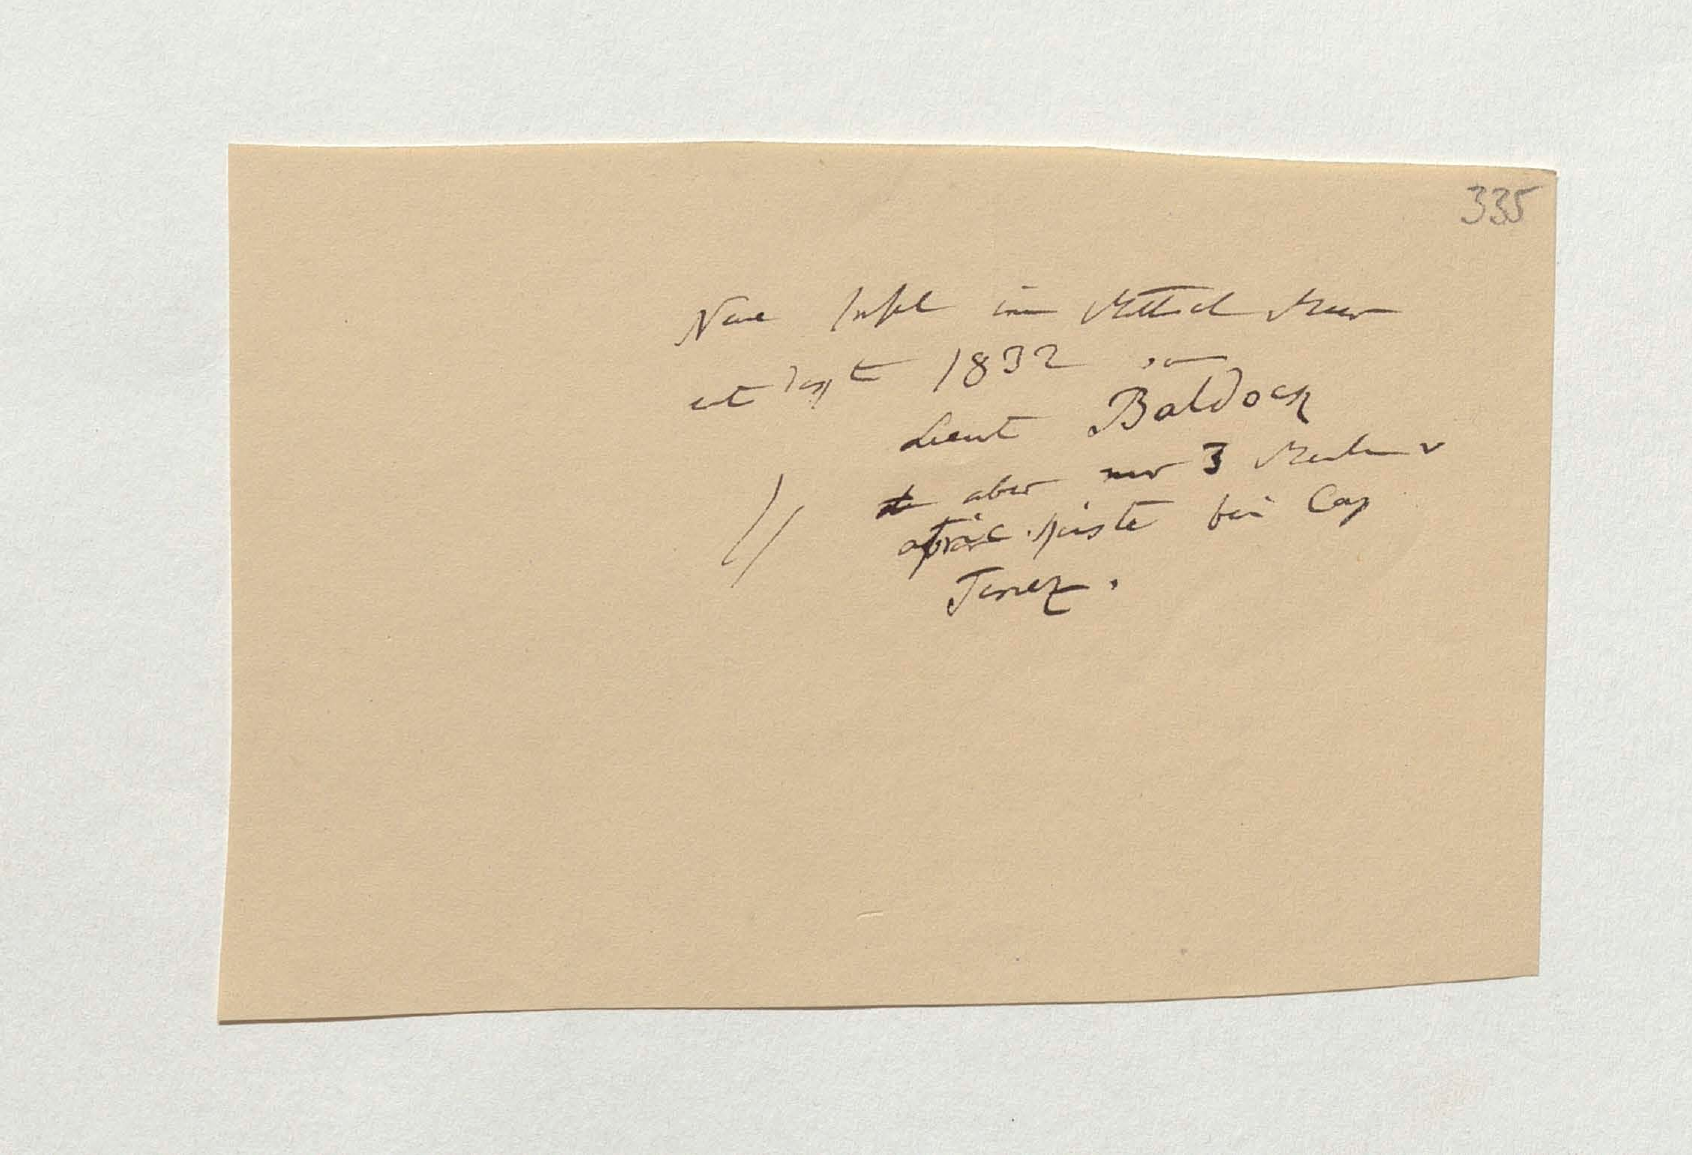 335
Neue Insel im Mittel Meer
entdeckt 1832 von
Lieut Baldock
aber nur 3 Meilen v
afric. Küste bei Cap
Tenez.